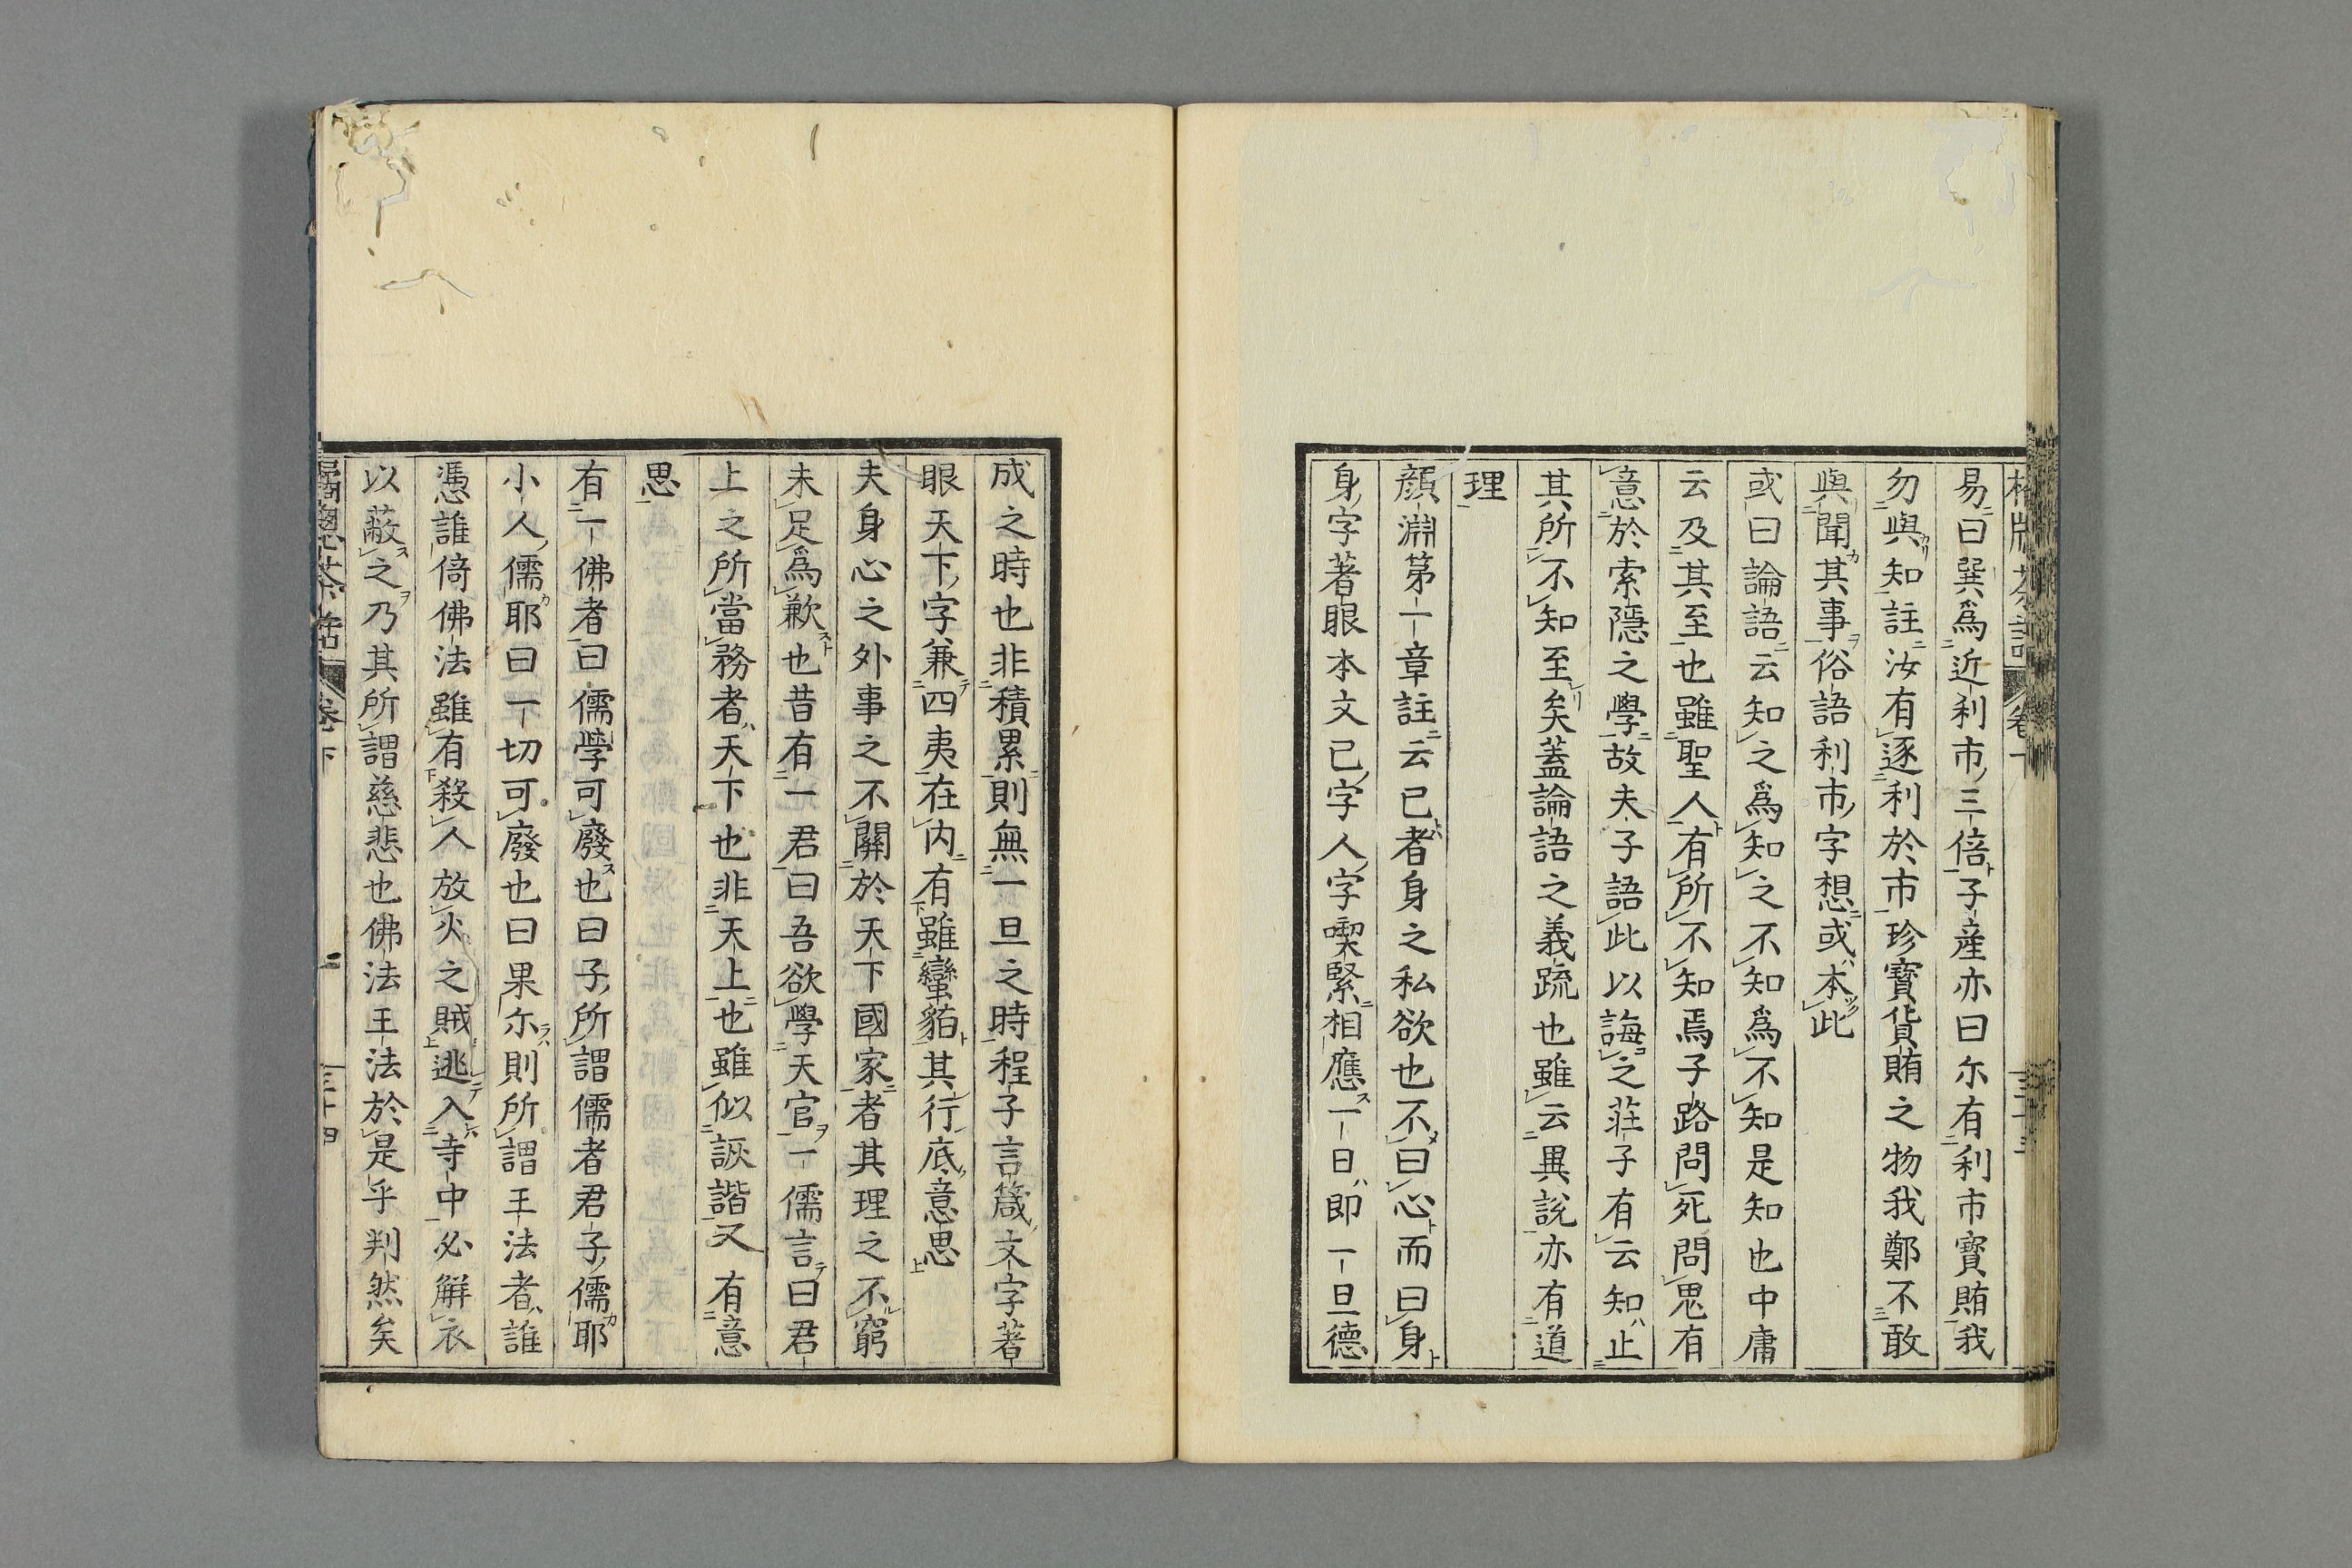 易曰巽爲近利市三倍子産亦曰尓有利市寳賄我
勿與知註汝有逐利於市珍寳貨賄之物我鄭不敢
與聞其事俗語利市字想或本此
或曰論語云知之爲知之不知爲不知是知也中庸
云及其至也雖聖人有所不知焉子路問死問鬼有
意於索隱之學故夫子語此以誨之莊子有云知止
其所不知至矣蓋論語之義疏也雖云異説亦有道
理
顔淵第一章註云已者身之私欲也不曰心而曰身
身字著眼本文已字人字喫緊相應一日即一旦德
成之時也非積累則無一旦之時程子言箴文字著
眼天下字兼四夷在内有雖蠻貊其行底意思
夫身心之外事之不關於天下國家者其理之不窮
未足爲歉也昔有一君曰吾欲學天官一儒言曰君
上之所當務者天下也非天上也雖似詼諧又有意
思
有一佛者曰儒學可廢也曰子所謂儒者君子儒耶
小人儒耶曰一切可廢也曰果尓則所謂王法者誰
憑誰倚佛法雖有殺人放火之賊逃入寺中必解衣
以蔽之乃其所謂慈悲也佛法王法於是乎判然矣
卷下
三十四